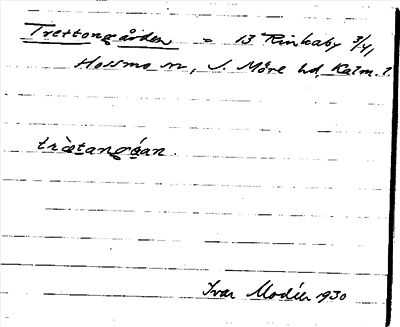 Trettongården = 13 Rinkaby 3/4,
Hossmo sn, S. Möre hd, Kalm. l.
trètangǻan.
Ivar Modéer 1930